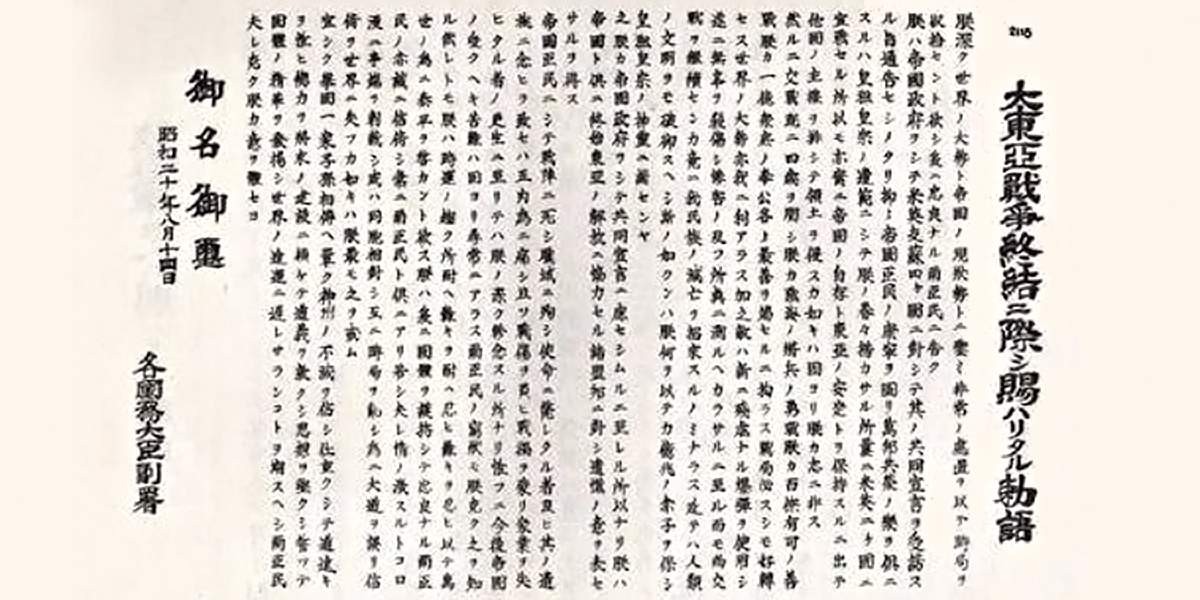 2115
大東亞戰爭終結ニ際シ賜ハリタル勅語
朕深ク世界ノ大勢ト帝國ノ現狀トニ鑒ミ非常ノ處置ヲ以テ時局ヲ
收拾セント欲シ茲ニ忠良ナル爾臣民ニ告ク
朕ハ帝國政府ヲシテ米英支蘇四國ニ對シ其ノ共同宣言ヲ受諾ス
ル旨通告セシメタリ抑々帝國臣民ノ康寧ヲ圖リ萬邦共榮ノ樂ヲ偕ニ
スルハ皇祖皇宗ノ遺範ニシテ朕ノ拳々措カサル所曩ニ米英二國ニ
宣戰セル所以モ亦實ニ帝國ノ自存ト東亞ノ安定トヲ
他國ノ主權ヲ排シ領土ヲ侵スカ如キハ固ヨリ朕カ志ニ非ス
然ルニ交戰既ニ四歳ヲ閲シ朕カ陸海ノ將兵ノ勇戰朕カ百僚有司ノ
朕カ一億衆庶ノ奉公各々最善ヲ盡セルニ拘ラス戰局必スシモ好轉
セス世界ノ大勢亦我ニ利アラス加之敵ハ新ニ殘虐ナル爆彈ヲ使用シ
無辜ヲ殺傷シ慘害ノ及フ所眞ニ測ルヘカラサルニ至ル而モ尚交
戰ヲ繼續センカ終ニ我民族ノ滅亡ヲ招來スルノミナラス延テハ人類
ノ文明ヲモ破却スヘシ斯ノ如クンハ朕何ヲ以テカ億兆ノ赤子ヲ保シ
皇祖皇宗ノ神靈ニ謝センヤ
之朕カ帝國政府ヲシテ共同宣言ニ應セシムルニ至レル所以ナリ朕ハ
帝國ト倶ニ終始東亞ノ解放ニ協力セル諸盟邦ニ對シ遺憾ノ意ヲ表セ
サルヲ得ス
帝國臣民ニシテ戰陣ニ死シ職域ニ殉シ非命ニ斃レタル者及ヒ其ノ遺
族ニ想ヒヲ致セハ五内爲ニ痛シ且ツ戰傷ヲ負ヒ戰禍ヲ蒙リ家業ヲ失
ヒタル者ノ更生ニ至リテハ朕ノ深ク軫念スル所ナリ惟フニ今後帝國
ノ受クヘキ苦難ハ固ヨリ尋常ニアラス爾臣民ノ衷情朕克ク之ヲ知
ル然レトモ朕ハ時運ノ趨ク所耐ヘ難キヲ耐ヘ忍ヒ難キヲ忍ヒ以テ萬
世ノ爲ニ泰平ヲ啓カント欲ス朕ハ茲ニ國體ヲ護持シテ忠良ナル爾臣
民ノ赤誠ニ信倚シ常ニ爾臣民ト倶ニアリ若シ夫レ情ノ激スルトコロ
漫ニ事端ヲ刺戟シ或ハ同胞相對シ互ニ時局ヲ亂シ爲ニ大道ヲ誤リ信
倚ヲ世界ニ失フカ如キハ朕最モ之ヲ戒ム
宜シク擧國一家子孫相傳ヘ堅ク神州ノ不滅ヲ信シ任重クシテ道遠キ
ヲ惟ヒ總力ヲ將來ノ建設ニ傾ケテ道義ヲ敦クシ志操ヲ堅クシ誓ツテ
國體ノ精華ヲ發揚シ世界ノ進運ニ遲レサランコトヲ期スヘシ爾臣民
夫レ克ク朕カ意ヲ體セヨ
御名御璽
昭和二十年八月十四日
各國務大臣副署